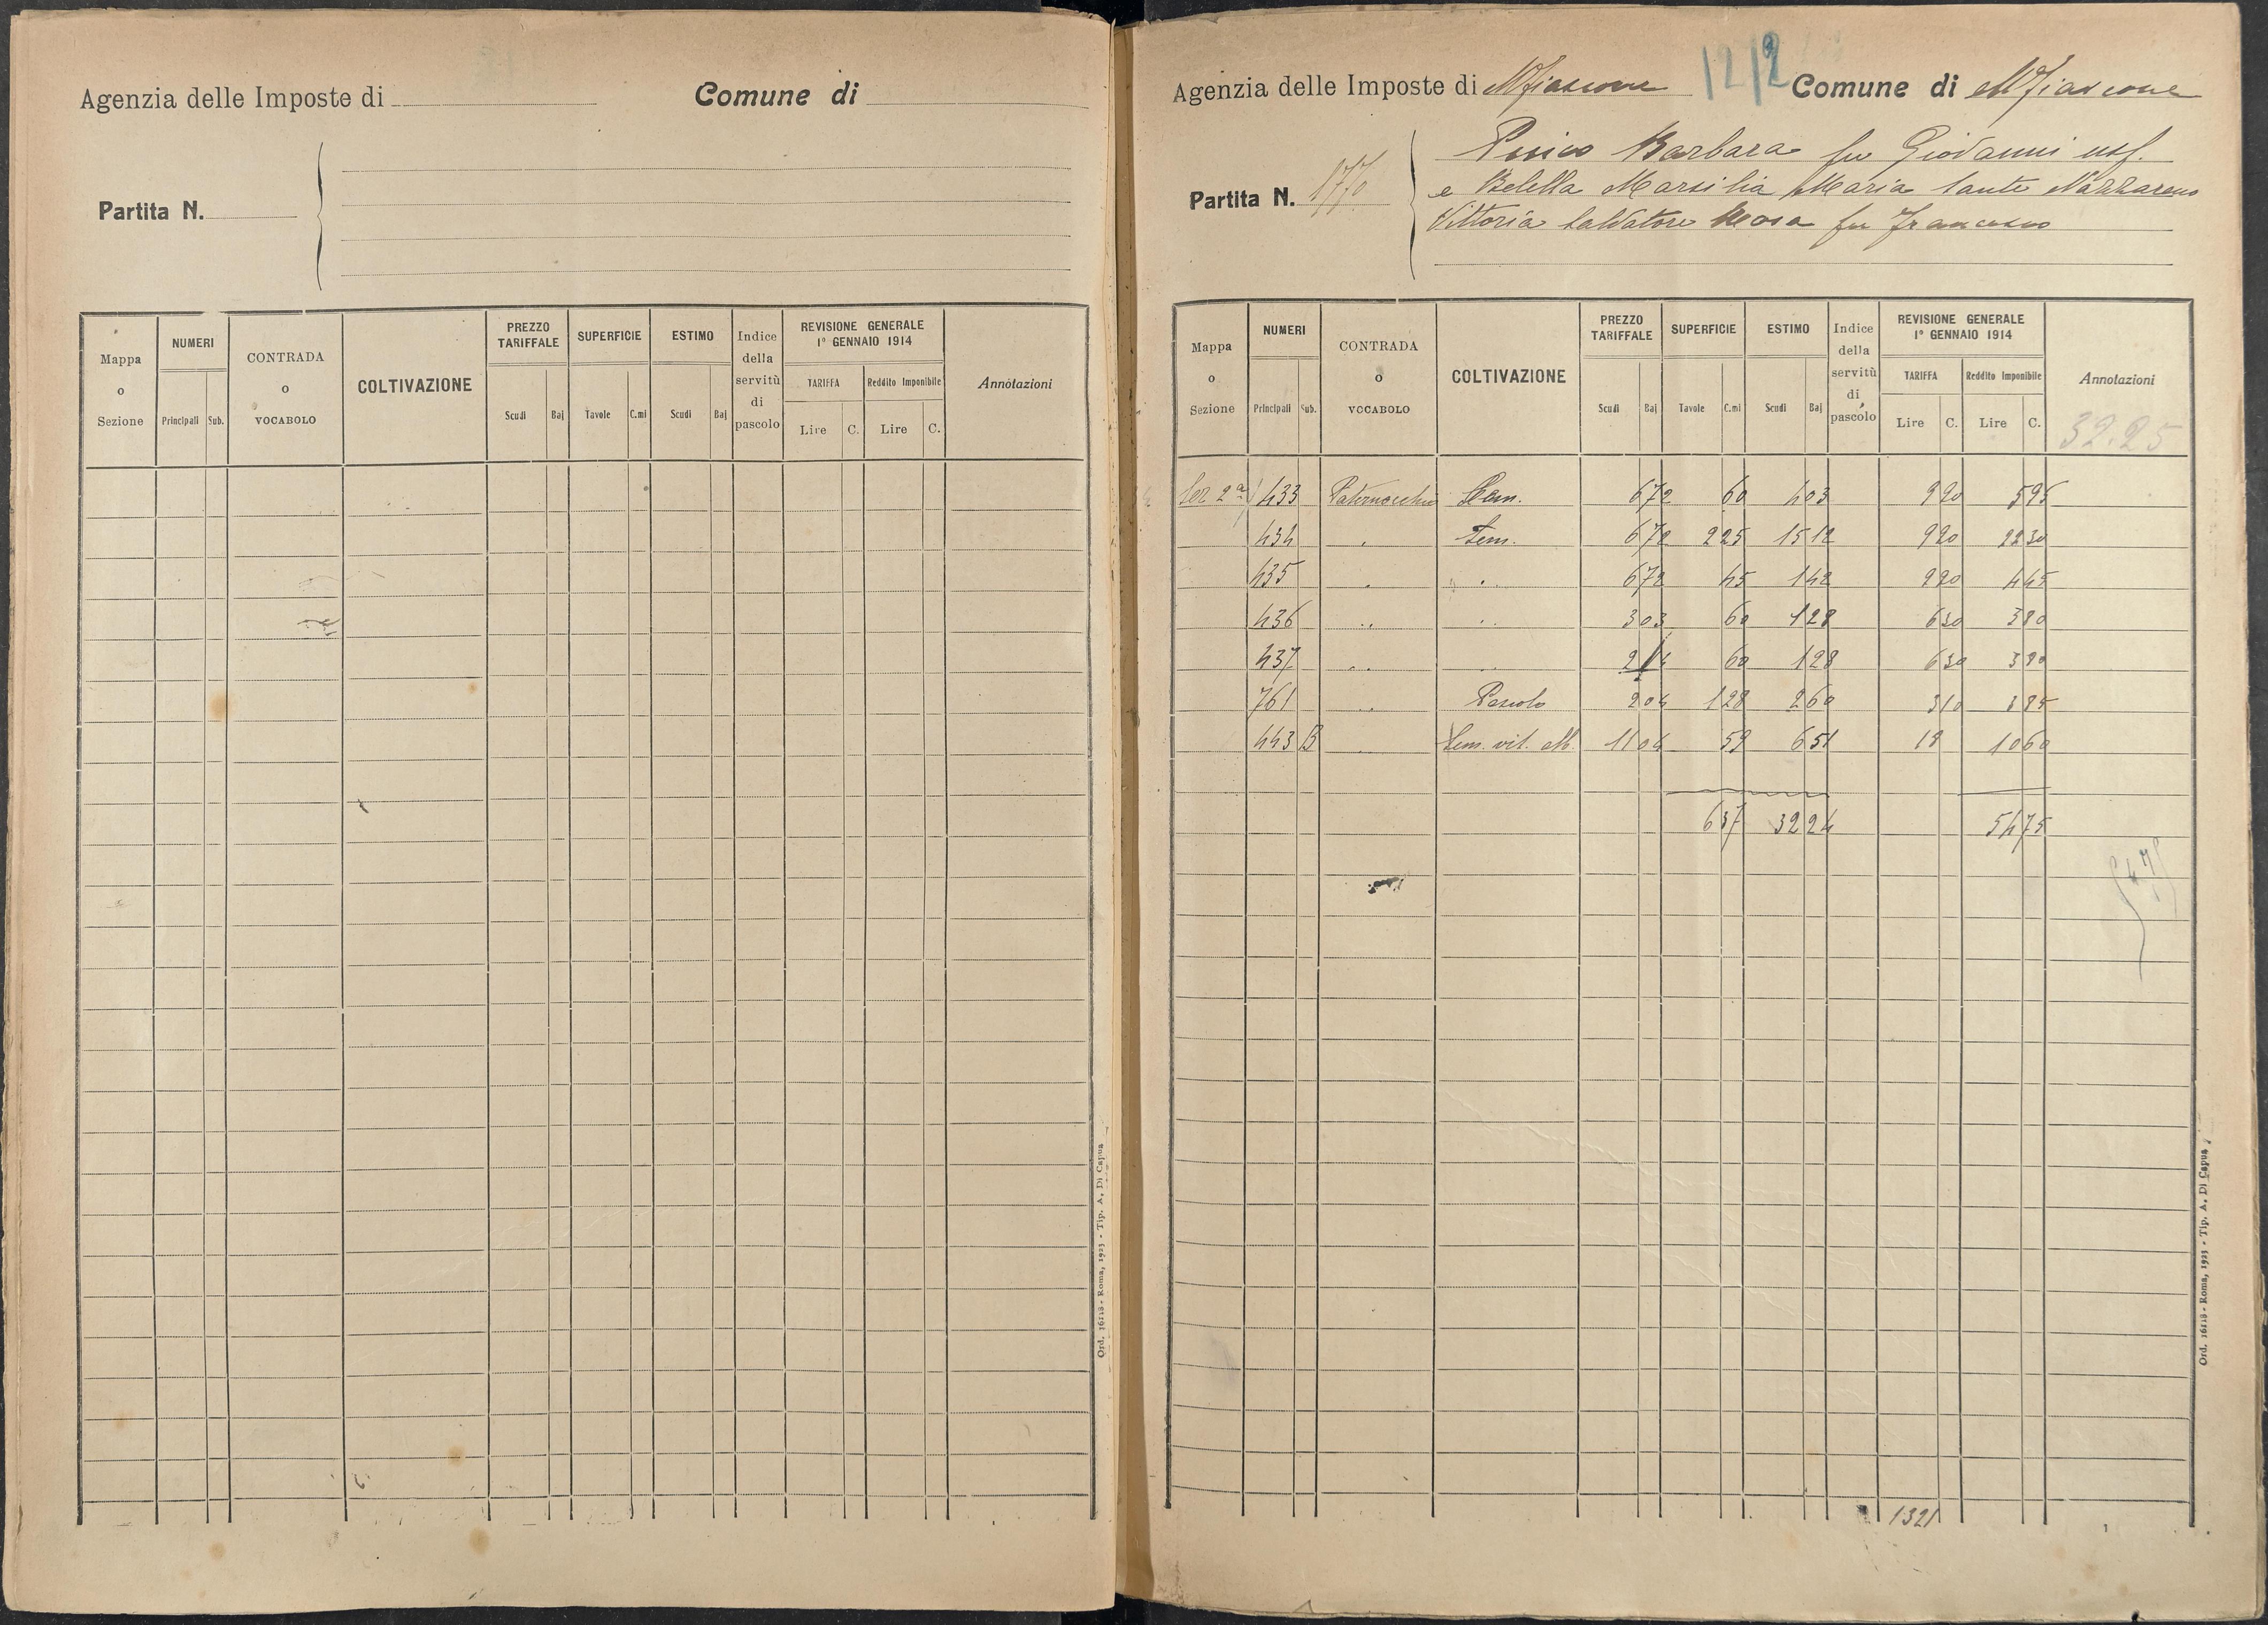 Agenzia delle Imposte di Comune di
Partita N.
Mappa o Sezione NUMERI Principali Sub. CONTRADA o VOCABOLO COLTIVAZIONE PREZZO TARIFFALE Scudi Baj SUPERFICIE Tavole C.mi ESTIMO Scudi Baj Indice della servitù di pascolo REVISIONE GENERALE 1° GENNAIO 1914 TARIFFA Lire C. Reddito Imponibile Lire C. Annotazioni
Ord. 16118 - Roma, 1923 - Tip. A. Di Capua
1212
Agenzia delle Imposte di Mfiascone Comune di Mfiascone
Partita N. 1770
Barbara fu Giovanni usf.
e Belella Marsilia Maria Sante Nazzareno
Vittoria Salvatore Rosa fu Francesco
Mappa o Sezione NUMERI Principali Sub. CONTRADA o VOCABOLO COLTIVAZIONE PREZZO TARIFFALE Scudi Baj SUPERFICIE Tavole C.mi ESTIMO Scudi Baj Indice della servitù di pascolo REVISIONE GENERALE 1° GENNAIO 1914 TARIFFA Lire C. Reddito Imponibile Lire C. Annotazioni
32.25
Sez 2ª 433 Paternocchio Sem. 672 60 403 920 595
434 Sem. 672 225 1512 990 2230
435 672 45 142 990 445
436 303 60 128 630 380
437 214 60 128 630 380
761 Pascolo 204 128 260 310 385
443 B Sem. vit. M. 1104 59 651 18 1060
637 3224 5475
47
1321
Ord. 16118 - Roma, 1923 - Tip. A. Di Capua